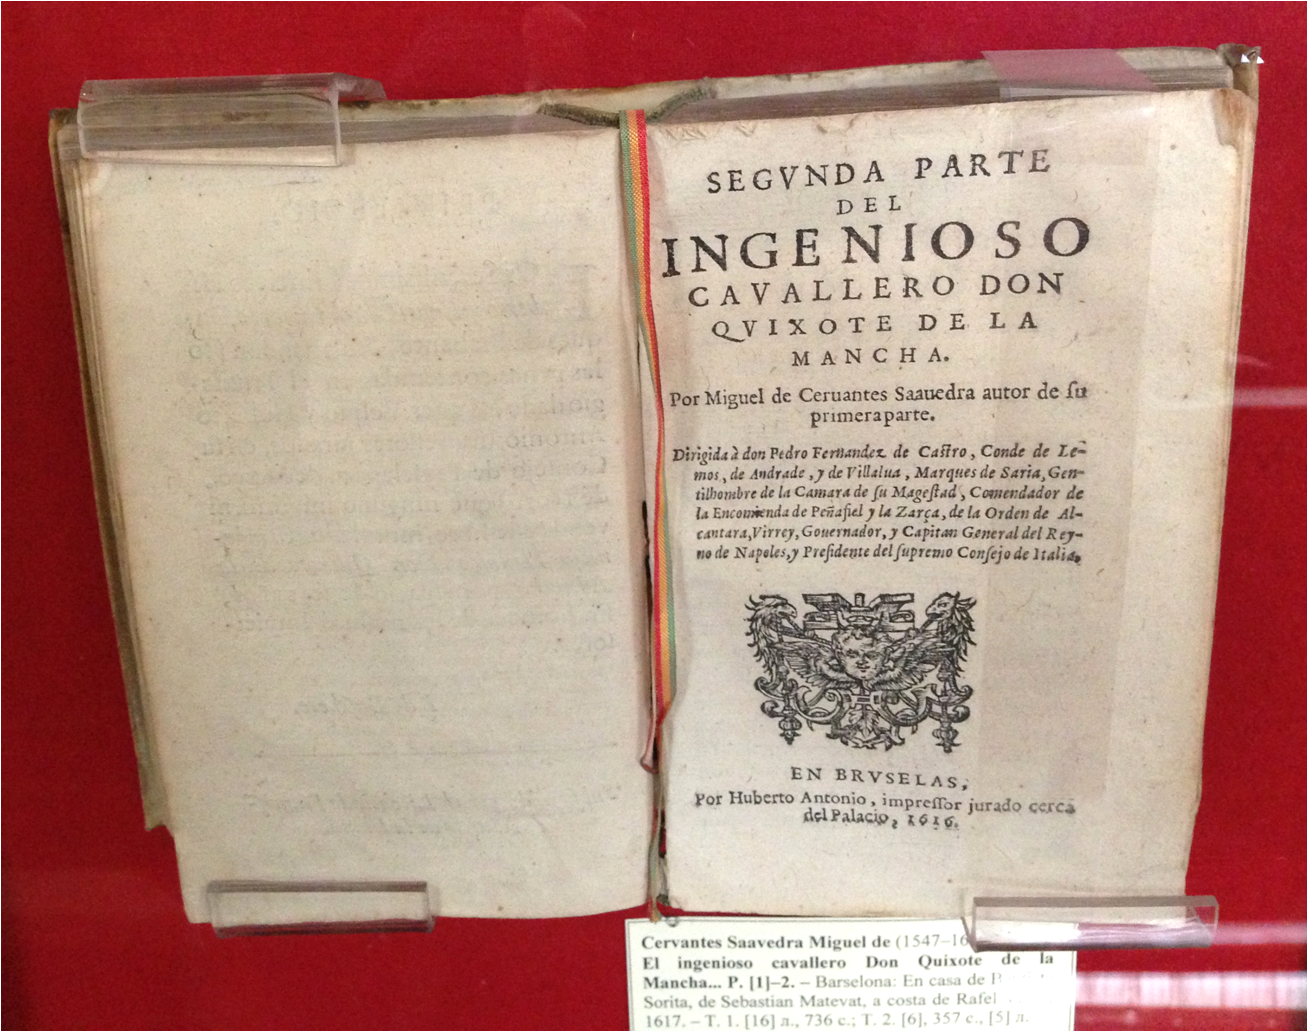 SEGVNDA PARTE
DEL
INGENIOSO
CAVALLERO DON
QVIXOTE DE LA
MANCHA.
Por Miguel de Ceruantes Saauedra autor de ſu
primera parte.
Dirigida à don Pedro Fernandez de Caſtro, Conde de Le-
mos, de Andrade, y de Villalua, Marques de Saria, Gen-
tilhombre de la Camara de ſu Mageſtad, Comendador de
la Encomienda de Peñafiel y la Zarça, de la Orden de Al-
cantara, Virrey, Gouernador, y Capitan General del Rey-
no de Napoles, y Preſidente del ſupremo Conſejo de Italia.
EN BRVSELAS,
Por Huberto Antonio, impreſſor jurado cerca
del Palacio, 1616.
Cervantes Saavedra Miguel de (1547–16
El ingenioso cavallero Don Quixote de la
Mancha... P. [1]–2. – Barselona: En casa de
Sorita, de Sebastian Matevat, a costa de Rafel
1617. – Т. 1. [16] л., 736 с.; Т. 2. [6], 357 с., [5] л.